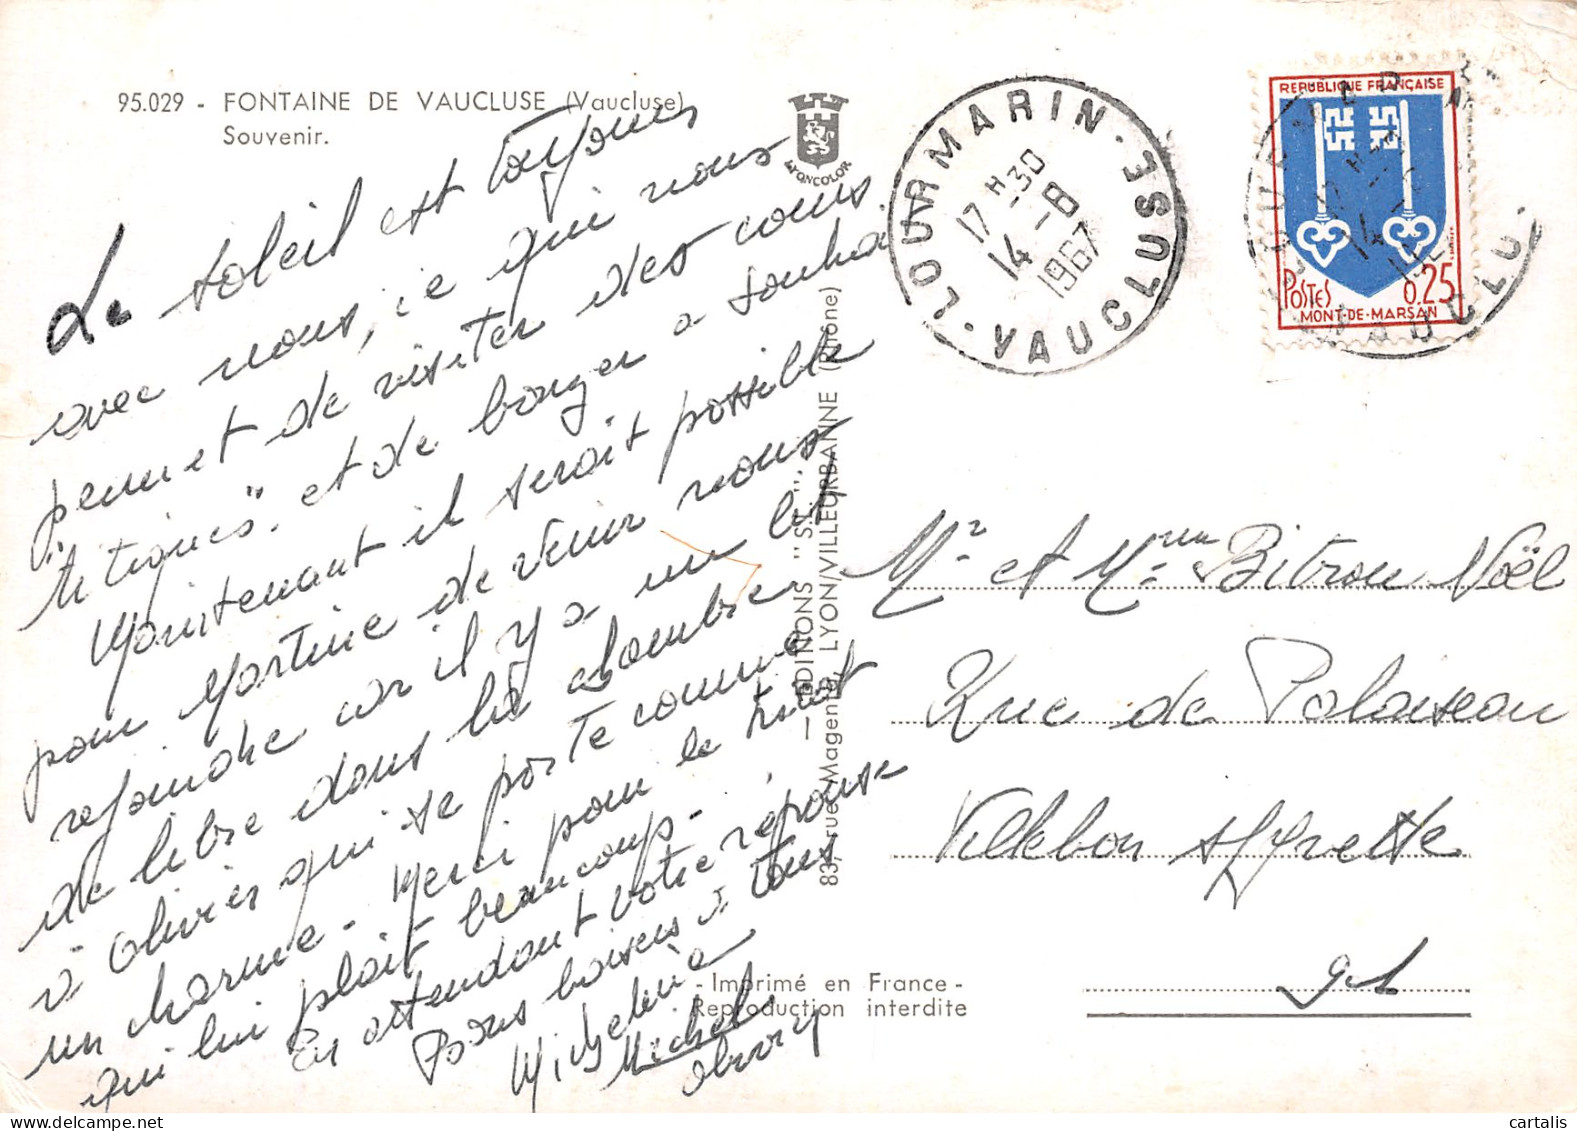 95.029 - FONTAINE DE VAUCLUSE (Vaucluse)
Souvenir.
Le soleil est toujours
avec nous, ce qui nous
permet de visiter des coins
"
et de bouger a souhait
Maintenant il serait possible
pour Martine de venir nous
rejoindre car il y a un lit
de libre dans la chambre
à Olivier qui se porte comme
un charme - Merci pour le tricot
qui lui plait beaucoup -
En attendant votre réponse
Bons baisers à tous
Michelina
Michel
LYONCOLOR
— EDITIONS "S.L." —
83, rue Magenta, LYON/VILLEURBANNE (Rhône)
- Imprimé en France -
Reproduction interdite
LOURMARIN · VAUCLUSE ·
17 H 30
14 - 8
1967
REPUBLIQUE FRANÇAISE
POSTES 0,25
MONT-DE-MARSAN
17 H
14
VAUCLU
Mr et Mme Bitron Noël
Rue de Palaiseau
Villebon s/Yvette
cartalis